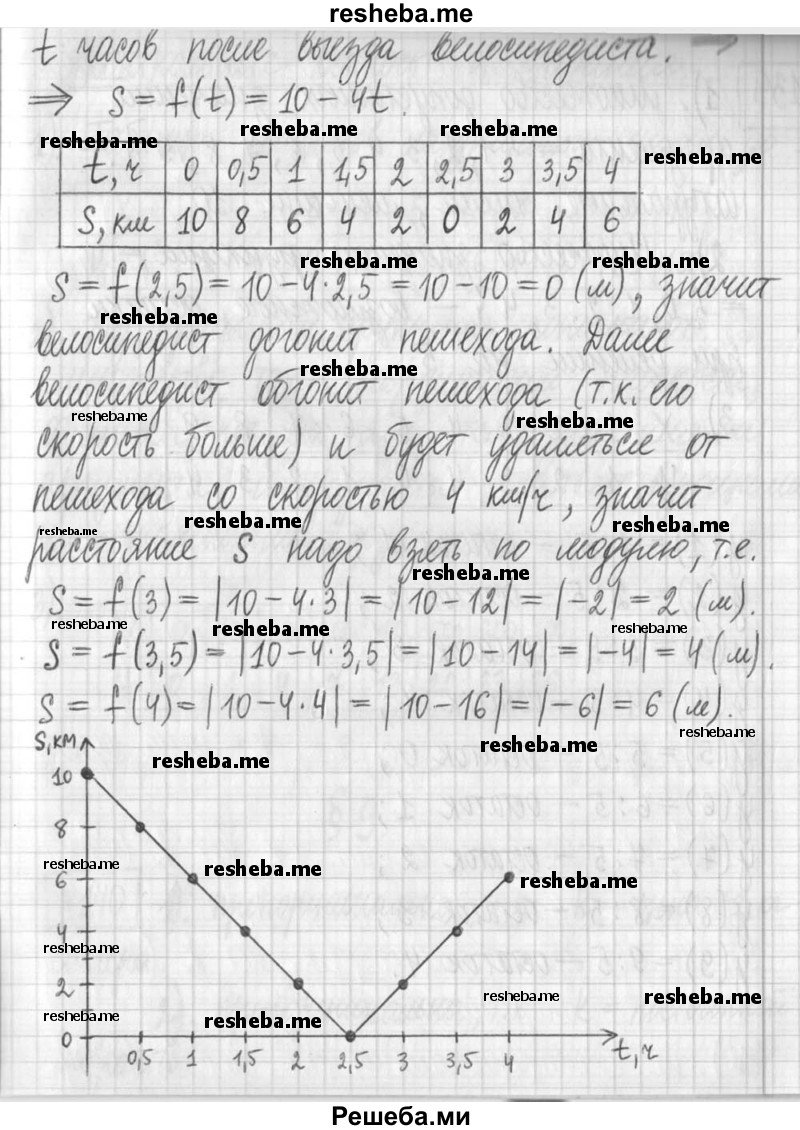 resheba.me
t часов после выезда велосипедиста. →
⇒ S = f(t) = 10 – 4t.
resheba.me resheba.me resheba.me
t, ч 0 0,5 1 1,5 2 2,5 3 3,5 4 resheba.me
S, км 10 8 6 4 2 0 2 4 6
resheba.me resheba.me
S = f(2,5) = 10 – 4·2,5 = 10 – 10 = 0 (м), значит
resheba.me
велосипедист догонит пешехода. Далее
resheba.me
велосипедист обгонит пешехода (т.к. его
resheba.me resheba.me
скорость больше) и будет удаляться от
пешехода со скоростью 4 км/ч, значит
resheba.me resheba.me resheba.me
расстояние S надо взять по модулю, т.е.
resheba.me
S = f(3) = |10 – 4·3| = |10 – 12| = |–2| = 2 (м).
resheba.me resheba.me resheba.me
S = f(3,5) = |10 – 4·3,5| = |10 – 14| = |–4| = 4 (м).
S = f(4) = |10 – 4·4| = |10 – 16| = |–6| = 6 (м).
resheba.me
S, км resheba.me
resheba.me
10
8
resheba.me resheba.me
6 resheba.me
4
resheba.me
2 resheba.me resheba.me
resheba.me
0
0,5 1 1,5 2 2,5 3 3,5 4 t, ч
Решеба.ми